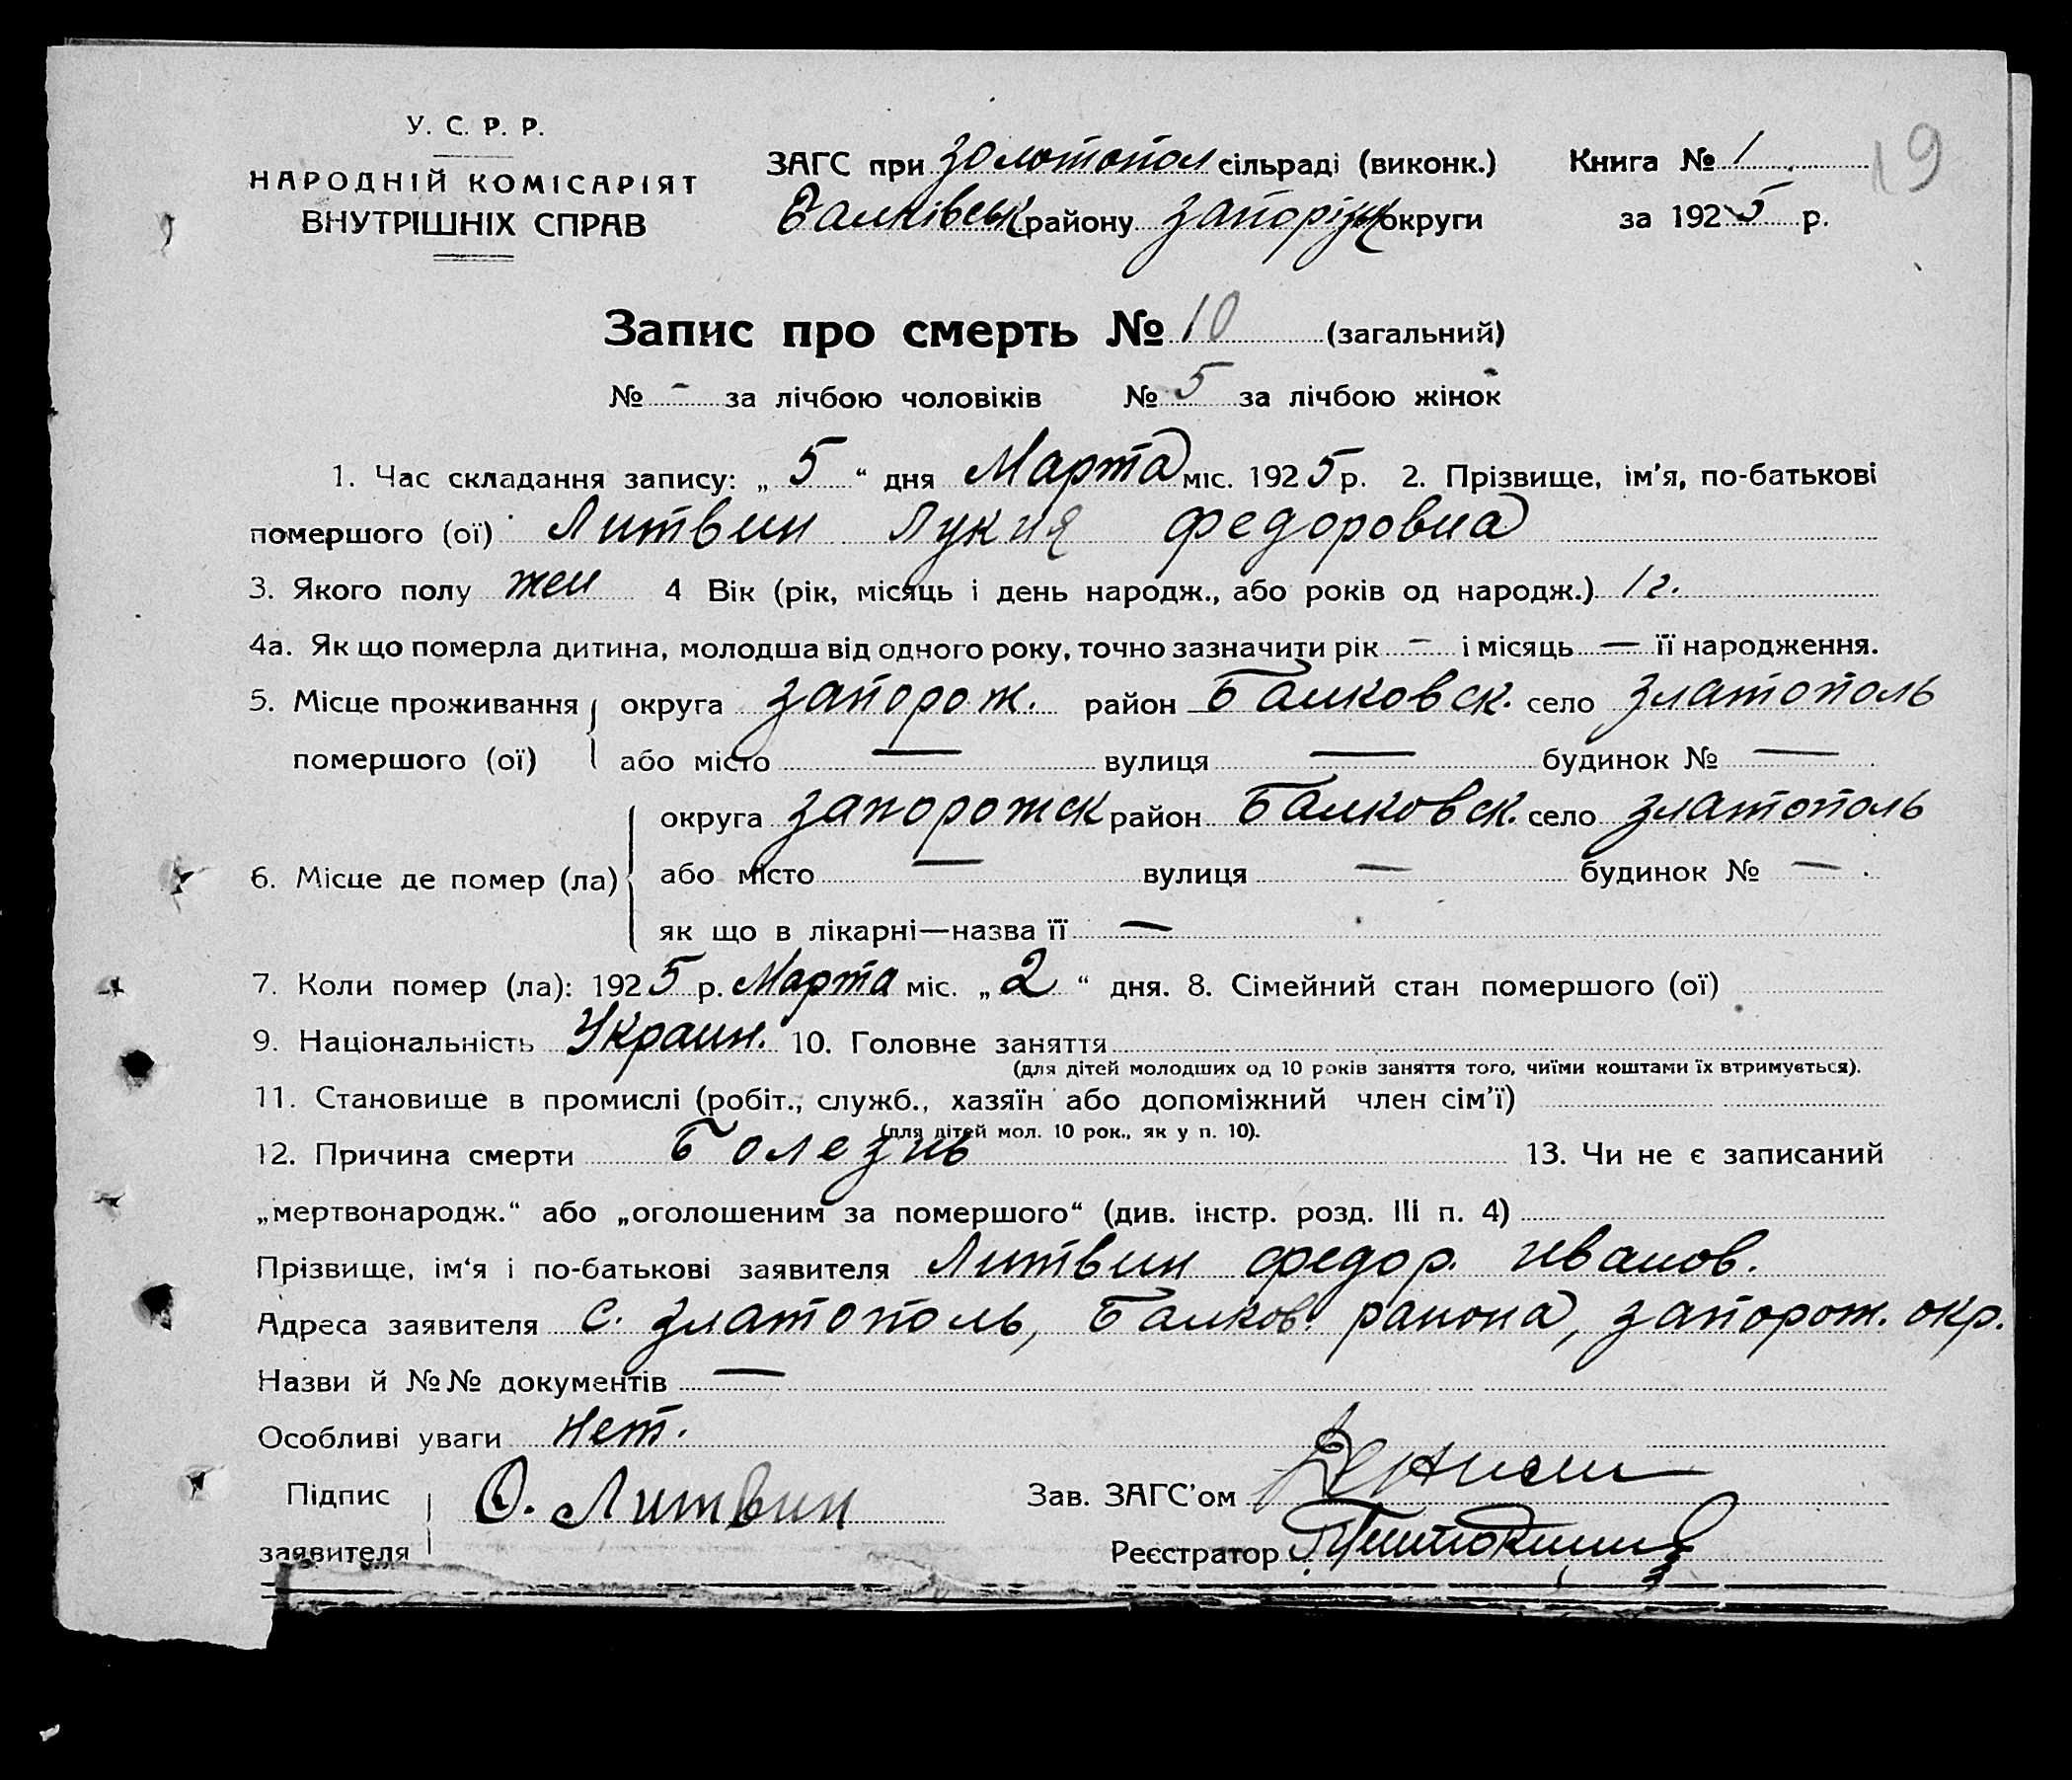 У. С. Р. Р.
НАРОДНІЙ КОМІСАРІЯТ
ВНУТРІШНІХ СПРАВ
ЗАГС при золотопол сільраді (виконк.)
Балківськ району запоріж округи
Книга № 1
за 1925 р.
19
Запис про смерть № 10 (загальний)
№ - за лічбою чоловіків № 5 за лічбою жінок
1. Час складання запису: „ 5 “ дня Марта міс. 1925 р. 2. Прізвище, ім'я, по-батькові
помершого (ої) Литвин Лукия Федоровна
3. Якого полу жен 4 Вік (рік, місяць і день народж., або років од народж.) 1 г.
4а. Як що померла дитина, молодша від одного року, точно зазначити рік - і місяць — її народження.
5. Місце проживання округа запорож. район Балковск. село златополь
помершого (ої) або місто — вулиця — будинок № —
округа запорожск район Балковск. село златополь
6. Місце де помер (ла) або місто — вулиця — будинок № — .
як що в лікарні—назва її —
7. Коли помер (ла): 1925 р. Марта міс. „ 2 “ дня. 8. Сімейний стан помершого (ої)
9. Національність Украин. 10. Головне заняття
(для дітей молодших од 10 років заняття того, чиїми коштами їх втримується).
11. Становище в промислі (робіт., служб., хазяїн або допоміжний член сім'ї)
(для дітей мол. 10 рок., як у п. 10).
12. Причина смерти Болезнь 13. Чи не є записаний
„мертвонародж.“ або „оголошеним за помершого“ (див. інстр. розд. III п. 4)
Прізвище, ім'я і по-батькові заявителя Литвин Федор. Иванов.
Адреса заявителя с. златополь, Балков. раиона, запорож. окр.
Назви й №№ документів —
Особливі уваги Нет.
Підпис О. Литвин Зав. ЗАГС'ом
заявителя Реєстратор